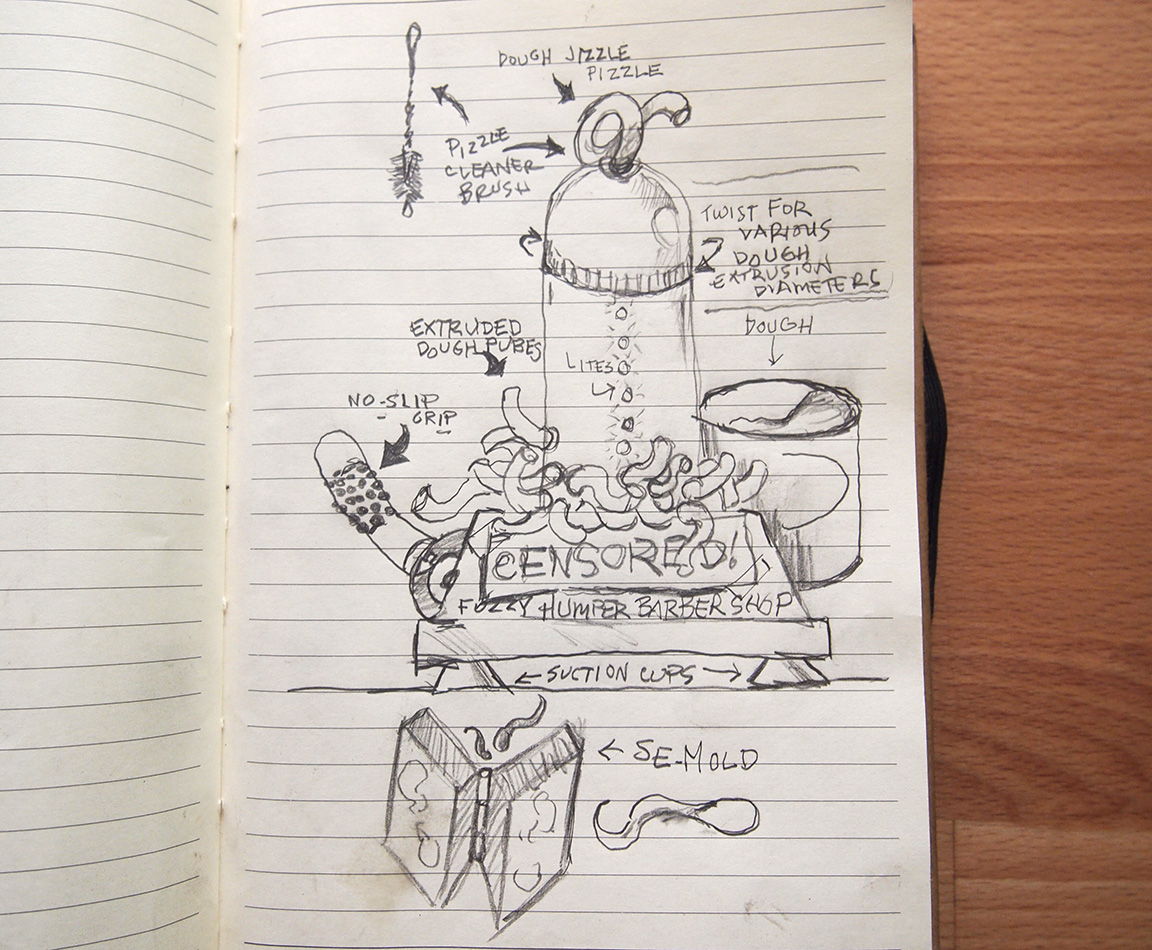 DOUGH JIZZLE
PIZZLE
PIZZLE
CLEANER
BRUSH
TWIST FOR
VARIOUS
DOUGH
EXTRUSION
DIAMETERS
DOUGH
EXTRUDED
DOUGH PUBES
LITES
NO-SLIP
GRIP
CENSORED!
FUZZY HUMPER BARBER SHOP
SUCTION CUPS
SE-MOLD